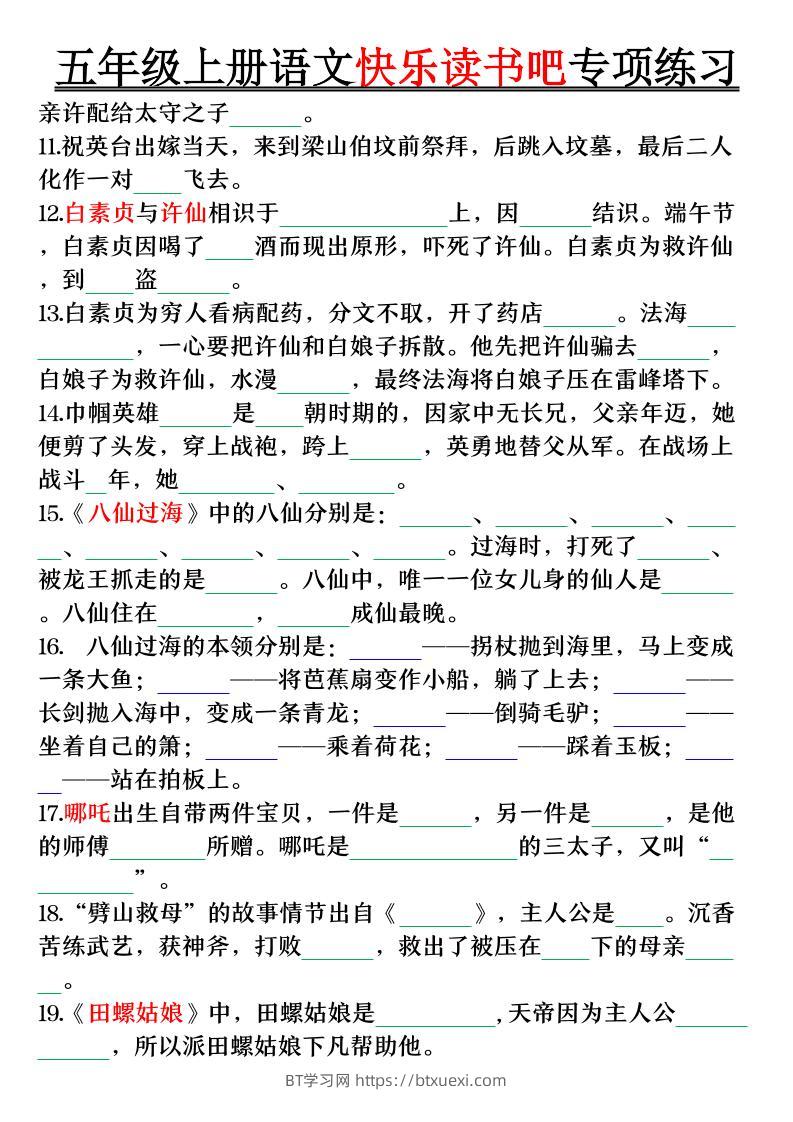 五年级上册语文快乐读书吧专项练习
亲许配给太守之子______。
11.祝英台出嫁当天，来到梁山伯坟前祭拜，后跳入坟墓，最后二人
化作一对____飞去。
12.白素贞与许仙相识于______________上，因______结识。端午节
，白素贞因喝了____酒而现出原形，吓死了许仙。白素贞为救许仙
，到____盗______。
13.白素贞为穷人看病配药，分文不取，开了药店______。法海____
________，一心要把许仙和白娘子拆散。他先把许仙骗去______，
白娘子为救许仙，水漫______，最终法海将白娘子压在雷峰塔下。
14.巾帼英雄______是____朝时期的，因家中无长兄，父亲年迈，她
便剪了头发，穿上战袍，跨上______，英勇地替父从军。在战场上
战斗__年，她________、________。
15.《八仙过海》中的八仙分别是：______、______、______、____
__、______、______、______、______。过海时，打死了______、
被龙王抓走的是______。八仙中，唯一一位女儿身的仙人是______
。八仙住在________，______成仙最晚。
16. 八仙过海的本领分别是：______——拐杖抛到海里，马上变成
一条大鱼；______——将芭蕉扇变作小船，躺了上去；______——
长剑抛入海中，变成一条青龙；______——倒骑毛驴；______——
坐着自己的箫；______——乘着荷花；______——踩着玉板；____
__——站在拍板上。
17.哪吒出生自带两件宝贝，一件是______，另一件是______，是他
的师傅________所赠。哪吒是______________的三太子，又叫“__
________”。
18.“劈山救母”的故事情节出自《______》，主人公是____。沉香
苦练武艺，获神斧，打败______，救出了被压在____下的母亲____
__。
19.《田螺姑娘》中，田螺姑娘是__________,天帝因为主人公______
______，所以派田螺姑娘下凡帮助他。
BT学习网 https://btxuexi.com